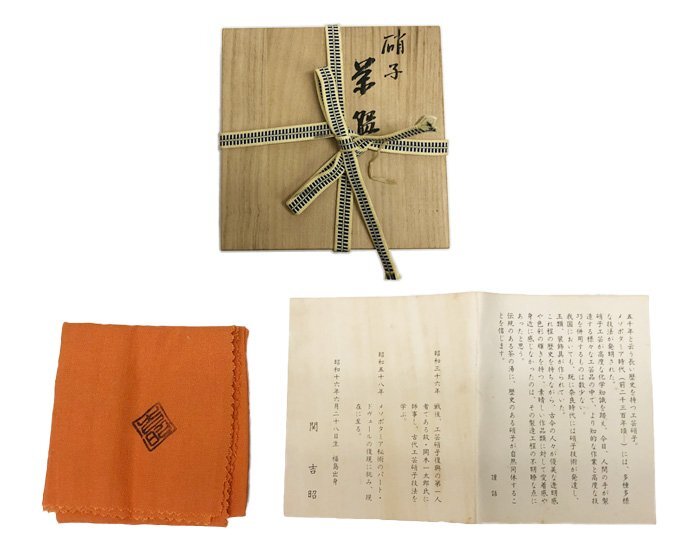 硝子
茶盌
五千年と云う長い歴史を持つ工芸硝子。
メソポタミア時代（前二千三百年頃！）には、多種多様
な技法が発明された。
硝子工芸が高度な化学知識を踏え、今日、人間の手が製
造する様々な工芸品の中で、より知的な作業と高度な技
巧を併用するものは数少ない。
我国においても、既に奈良時代には硝子技術が発達し、
玉類、装飾具が作られていた。
これ程の歴史を持ちながら、古今の人々が優美な透明感
や色彩の輝きを持つ、素晴しい作品類に対して愛着感や
身近に感じなかったのは、その製造工程の不明瞭な点に
あったと思う。
伝統のある茶の湯に、歴史のある硝子が自然同体するこ
とを信じます。
謹話
昭和三十六年
戦後、工芸硝子復興の第一人
者である故・岡本一太郎氏に
師事し、古代工芸硝子技法を
学ぶ。
昭和五十八年
メソポタミア秘術のパート・
ド・ヴェールの復現に挑み、現
在に至る。
昭和十六年六月二十八日生 福島出身
関 吉昭